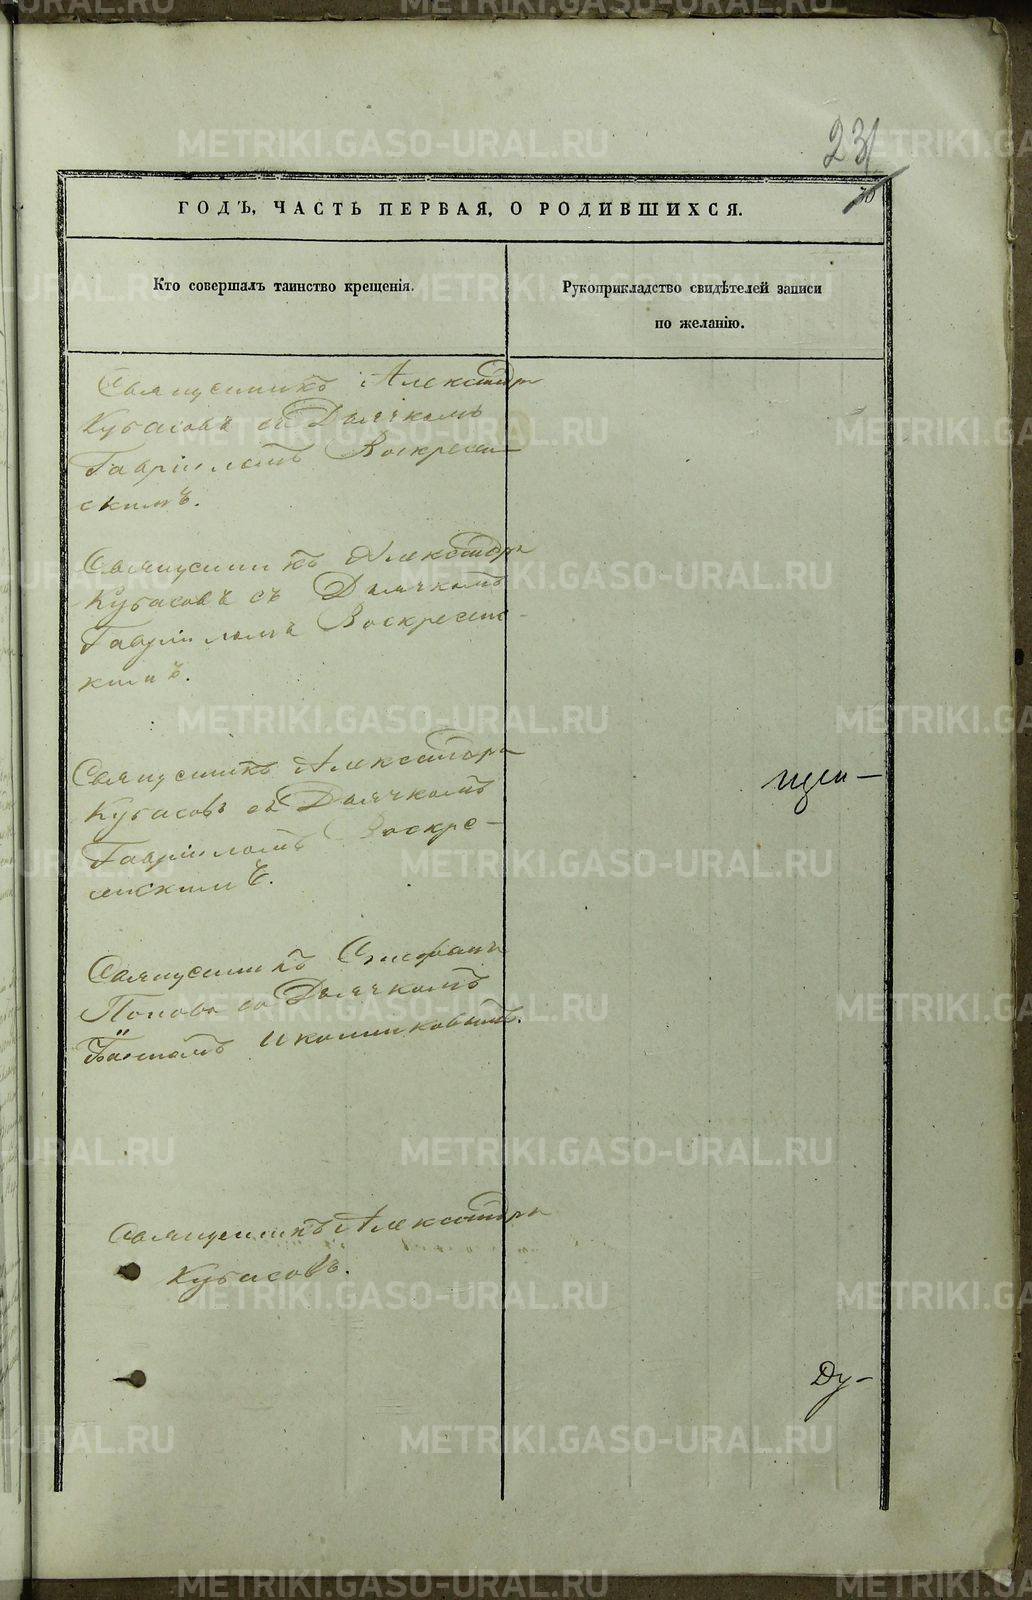 231
70
ГОДЪ, ЧАСТЬ ПЕРВАЯ, О РОДИВШИХСЯ.
Кто совершалъ таинство крещенія.
Рукоприкладство свидѣтелей записи
по желанію.
Священникъ Александръ
Кубасовъ съ Дьячкомъ
Гавріиломъ Воскресен-
скимъ.
Священникъ Александръ
Кубасовъ съ Дьячкомъ
Гавріиломъ Воскресенс-
кимъ.
Священникъ Александръ
Кубасовъ съ Дьячкомъ
Гавріиломъ Воскре-
сенскимъ.
щен-
Священникъ Стефанъ
Поповъ съ Дьячкомъ
Иконниковымъ.
Священникъ Александръ
Кубасовъ.
Ду-
METRIKI.GASO-URAL.RU